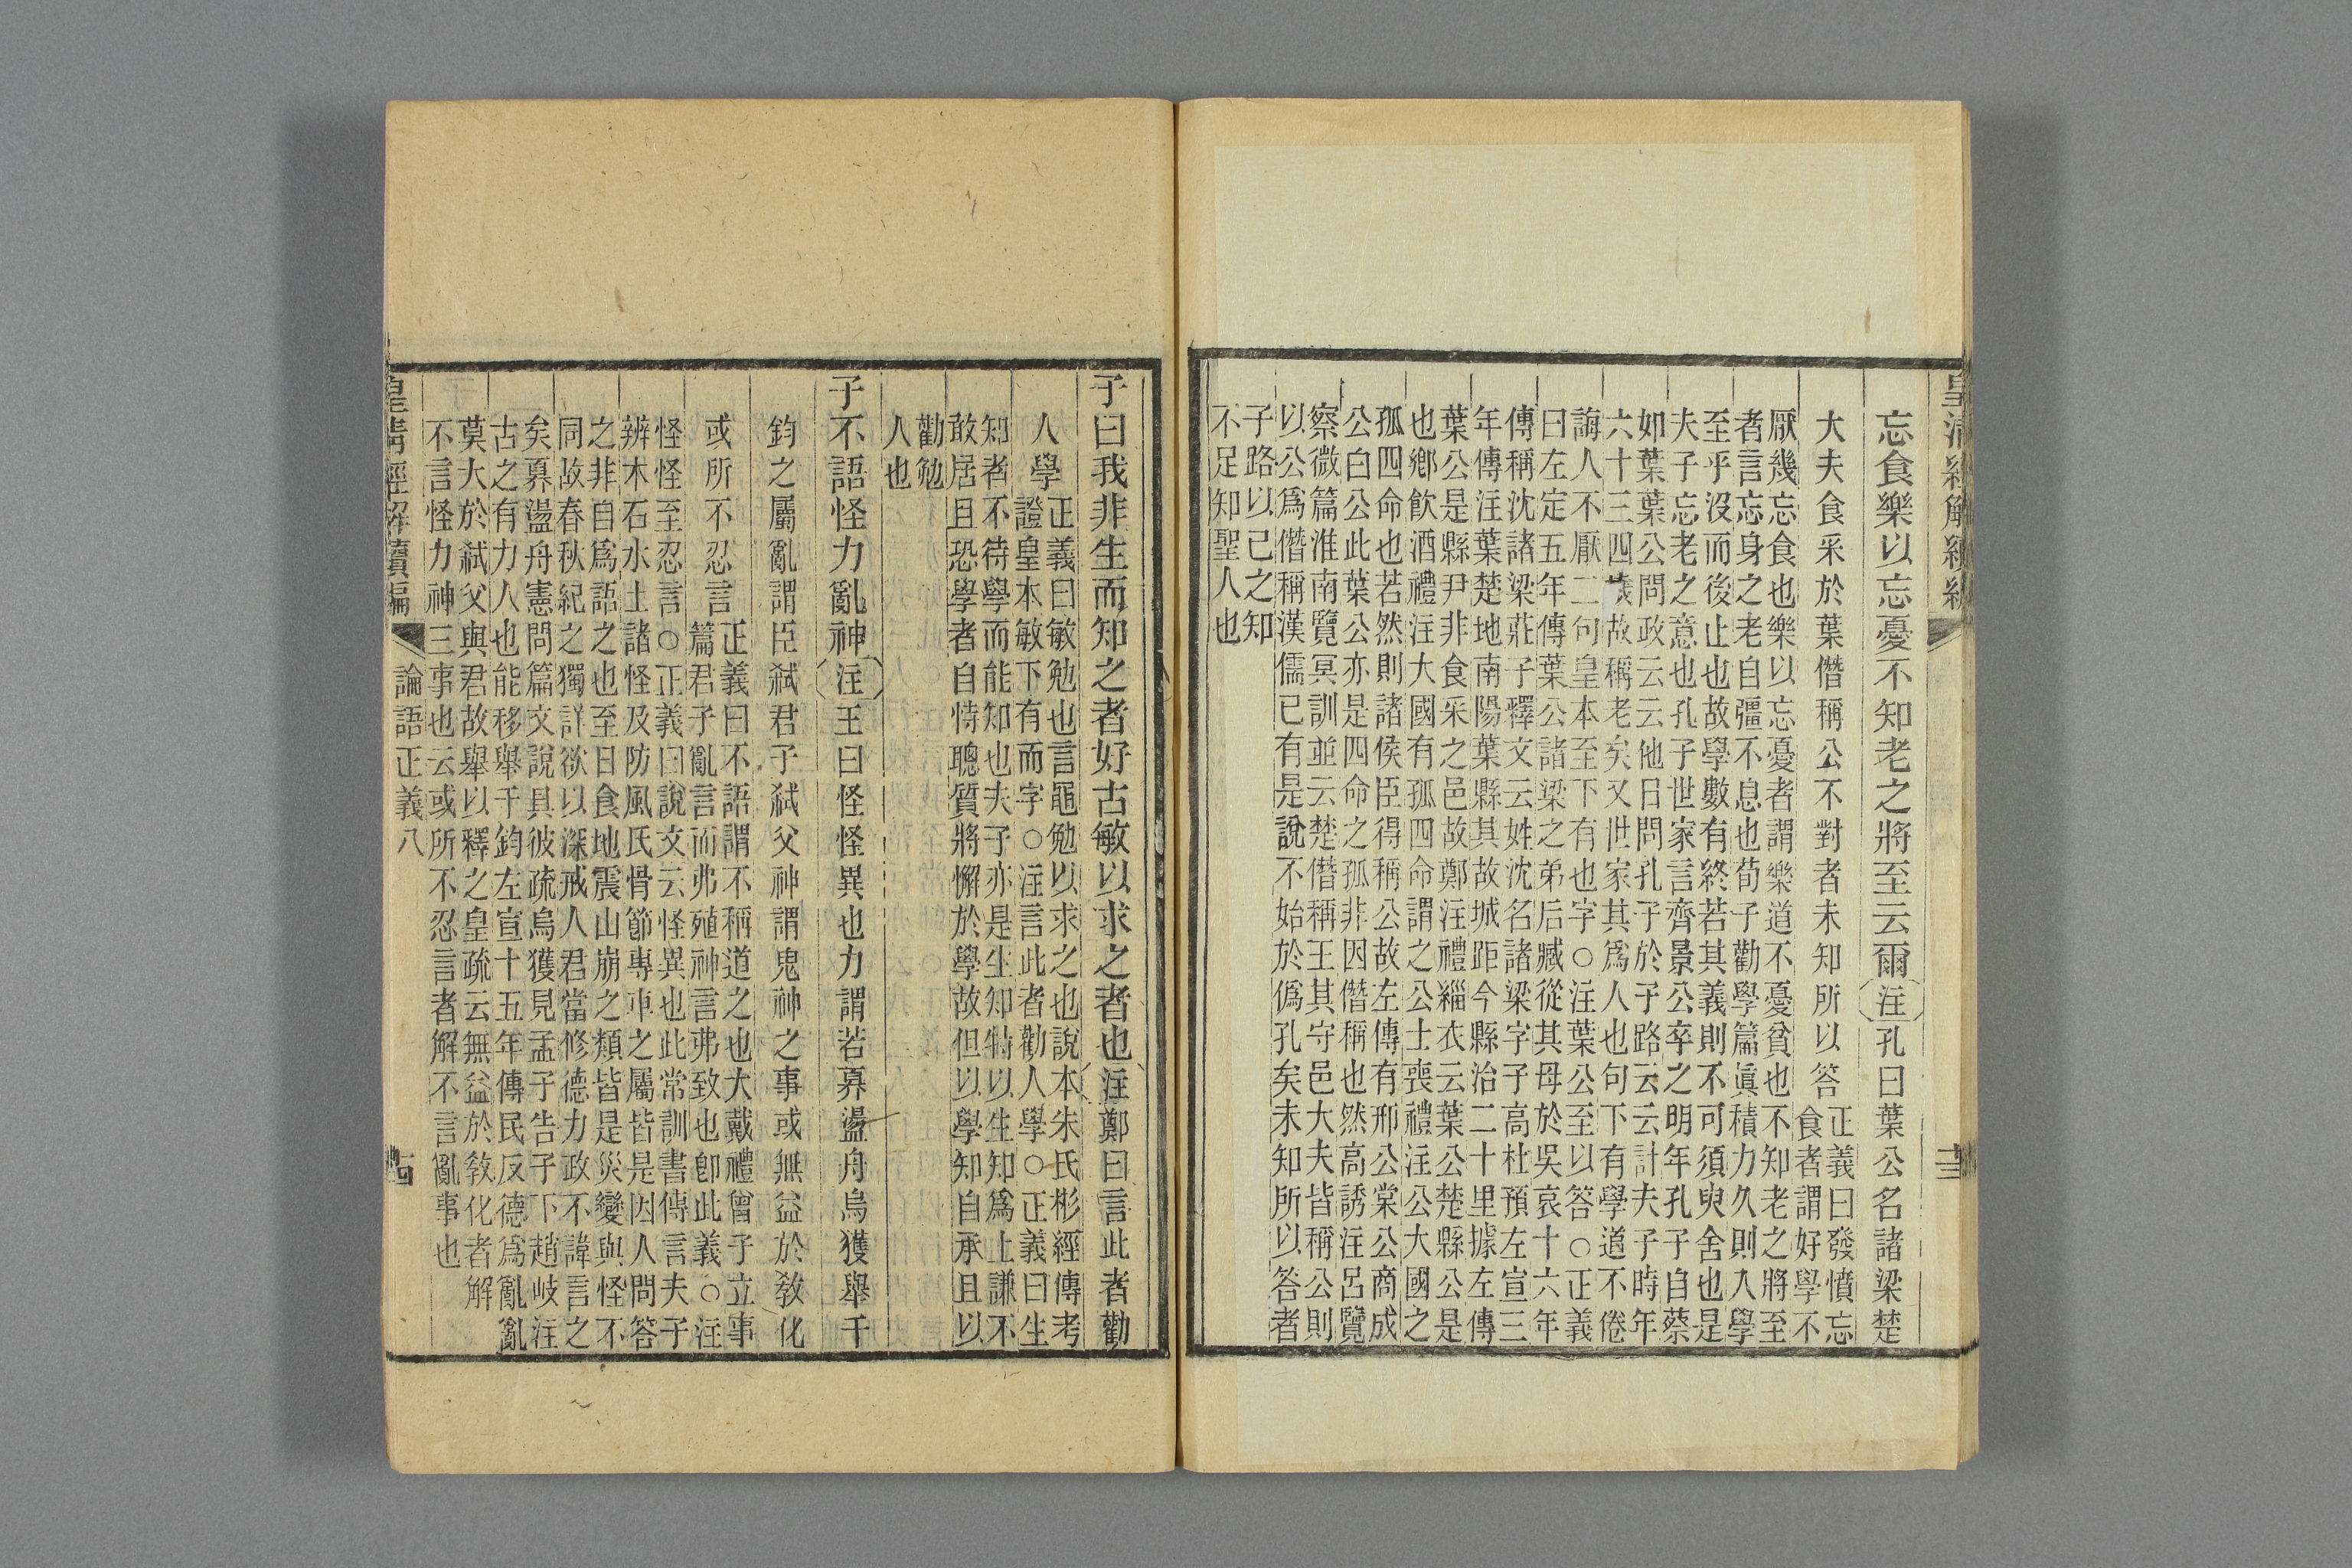 皇清經解續編
忘食樂以忘憂不知老之將至云爾注孔曰葉公名諸梁楚
大夫食采於葉僭稱公不對者未知所以答
正義曰發憤忘
食者謂好學不
厭幾忘食也樂以忘憂者謂樂道不憂貧也不知老之將至
者言忘身之老自彊不息也荀子勸學篇眞積力久則入學
至乎沒而後止也故學數有終若其義則不可須臾舍也是
夫子忘老之意也孔子世家言齊景公卒之明年孔子自蔡
如葉葉公問政云云他日問孔子於子路云云計夫子時年
六十三四歲故稱老矣又世家其爲人也句下有學道不倦
誨人不厭二句皇本至下有也字○注葉公至以答○正義
曰左定五年傳葉公諸梁之弟后臧從其母於吳哀十六年
傳稱沈諸梁莊子釋文云姓沈名諸梁字子高杜預左宣三
年傳注葉楚地南陽葉縣其故城距今縣治二十里據左傳
葉公是縣尹非食采之邑故鄭注禮緇衣云葉公楚縣公是
也鄉飲酒禮注大國有孤四命謂之公士喪禮注公大國之
孤四命也若然則諸侯臣得稱公故左傳有邢公棠公商成
公白公此葉公亦是四命之孤非因僭稱也然高誘注呂覽
察微篇淮南覽冥訓並云楚僭稱王其守邑大夫皆稱公則
以公爲僭稱漢儒已有是說不始於僞孔矣未知所以答者
子路以己之知
不足知聖人也
子曰我非生而知之者好古敏以求之者也注鄭曰言此者勸
人學
正義曰敏勉也言黽勉以求之也說本朱氏彬經傳考
證皇本敏下有而字○注言此者勸人學○正義曰生
知者不待學而能知也夫子亦是生知特以生知爲上謙不
敢居且恐學者自恃聰質將懈於學故但以學知自承且以
勸勉
人也
子不語怪力亂神注王曰怪怪異也力謂若奡盪舟烏獲舉千
鈞之屬亂謂臣弒君子弒父神謂鬼神之事或無益於敎化
或所不忍言
正義曰不語謂不稱道之也大戴禮曾子立事
篇君子亂言而弗殖神言弗致也卽此義○注
怪怪至忍言○正義曰說文云怪異也此常訓書傳言夫子
辨木石水土諸怪及防風氏骨節專車之屬皆是因人問答
之非自爲語之也至日食地震山崩之類皆是災變與怪不
同故春秋紀之獨詳欲以深戒人君當修德力政不諱言之
矣奡盪舟憲問篇文說具彼疏烏獲見孟子告子下趙岐注
古之有力人也能移舉千鈞左宣十五年傳民反德爲亂亂
莫大於弒父與君故舉以釋之皇疏云無益於敎化者解
不言怪力神三事也云或所不忍言者解不言亂事也
皇清經解續編 論語正義八 十四